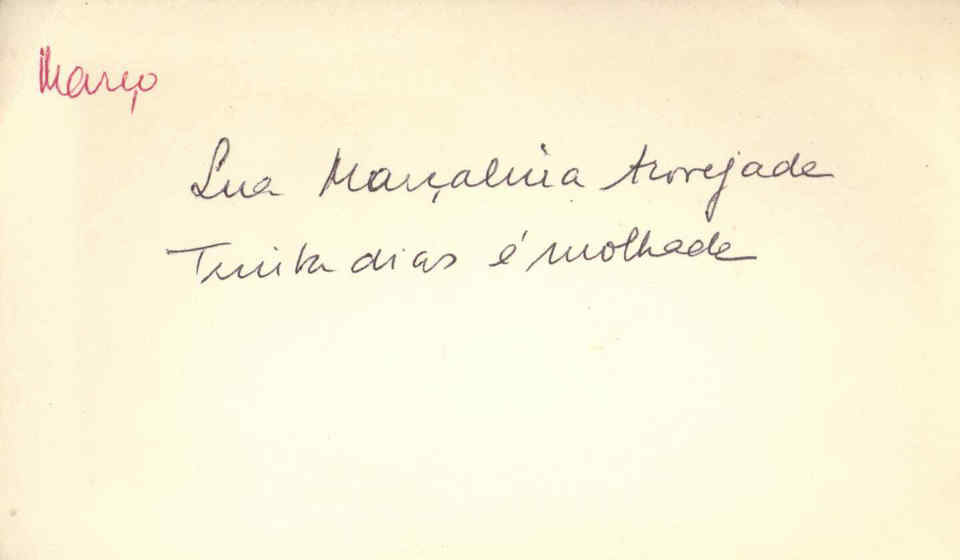 Março
Lua Marçalina trovejada
Trinta dias é molhada